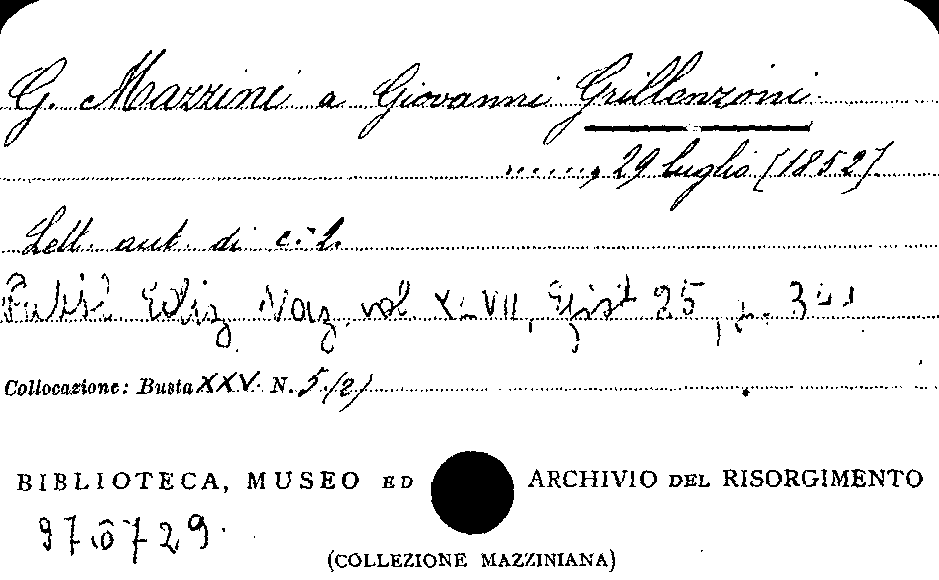 G. Mazzini a Giovanni Grillenzoni
......, 29 luglio [1852].
Lett. aut. di c. 2.
Pubbl. Ediz. Naz. vol. XLVII, Epist. 25, p.
Collocazione: Busta XXV. N. 5 (2)
BIBLIOTECA, MUSEO ED ARCHIVIO DEL RISORGIMENTO
970729.
(COLLEZIONE MAZZINIANA)